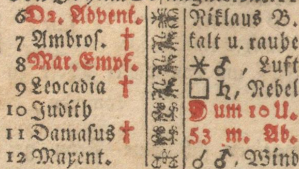 6 D 2. Advent. Niklaus B.
7 Ambros. † kalt u. rauhe
8 Mar. Empf. ⚹ ♂, Luft
9 Leocadia † □ ♄, Nebel
10 Judith um 10 U.
11 Damasus † 53 m. Ab.
12 Maxent. ☌ ♂, Wind